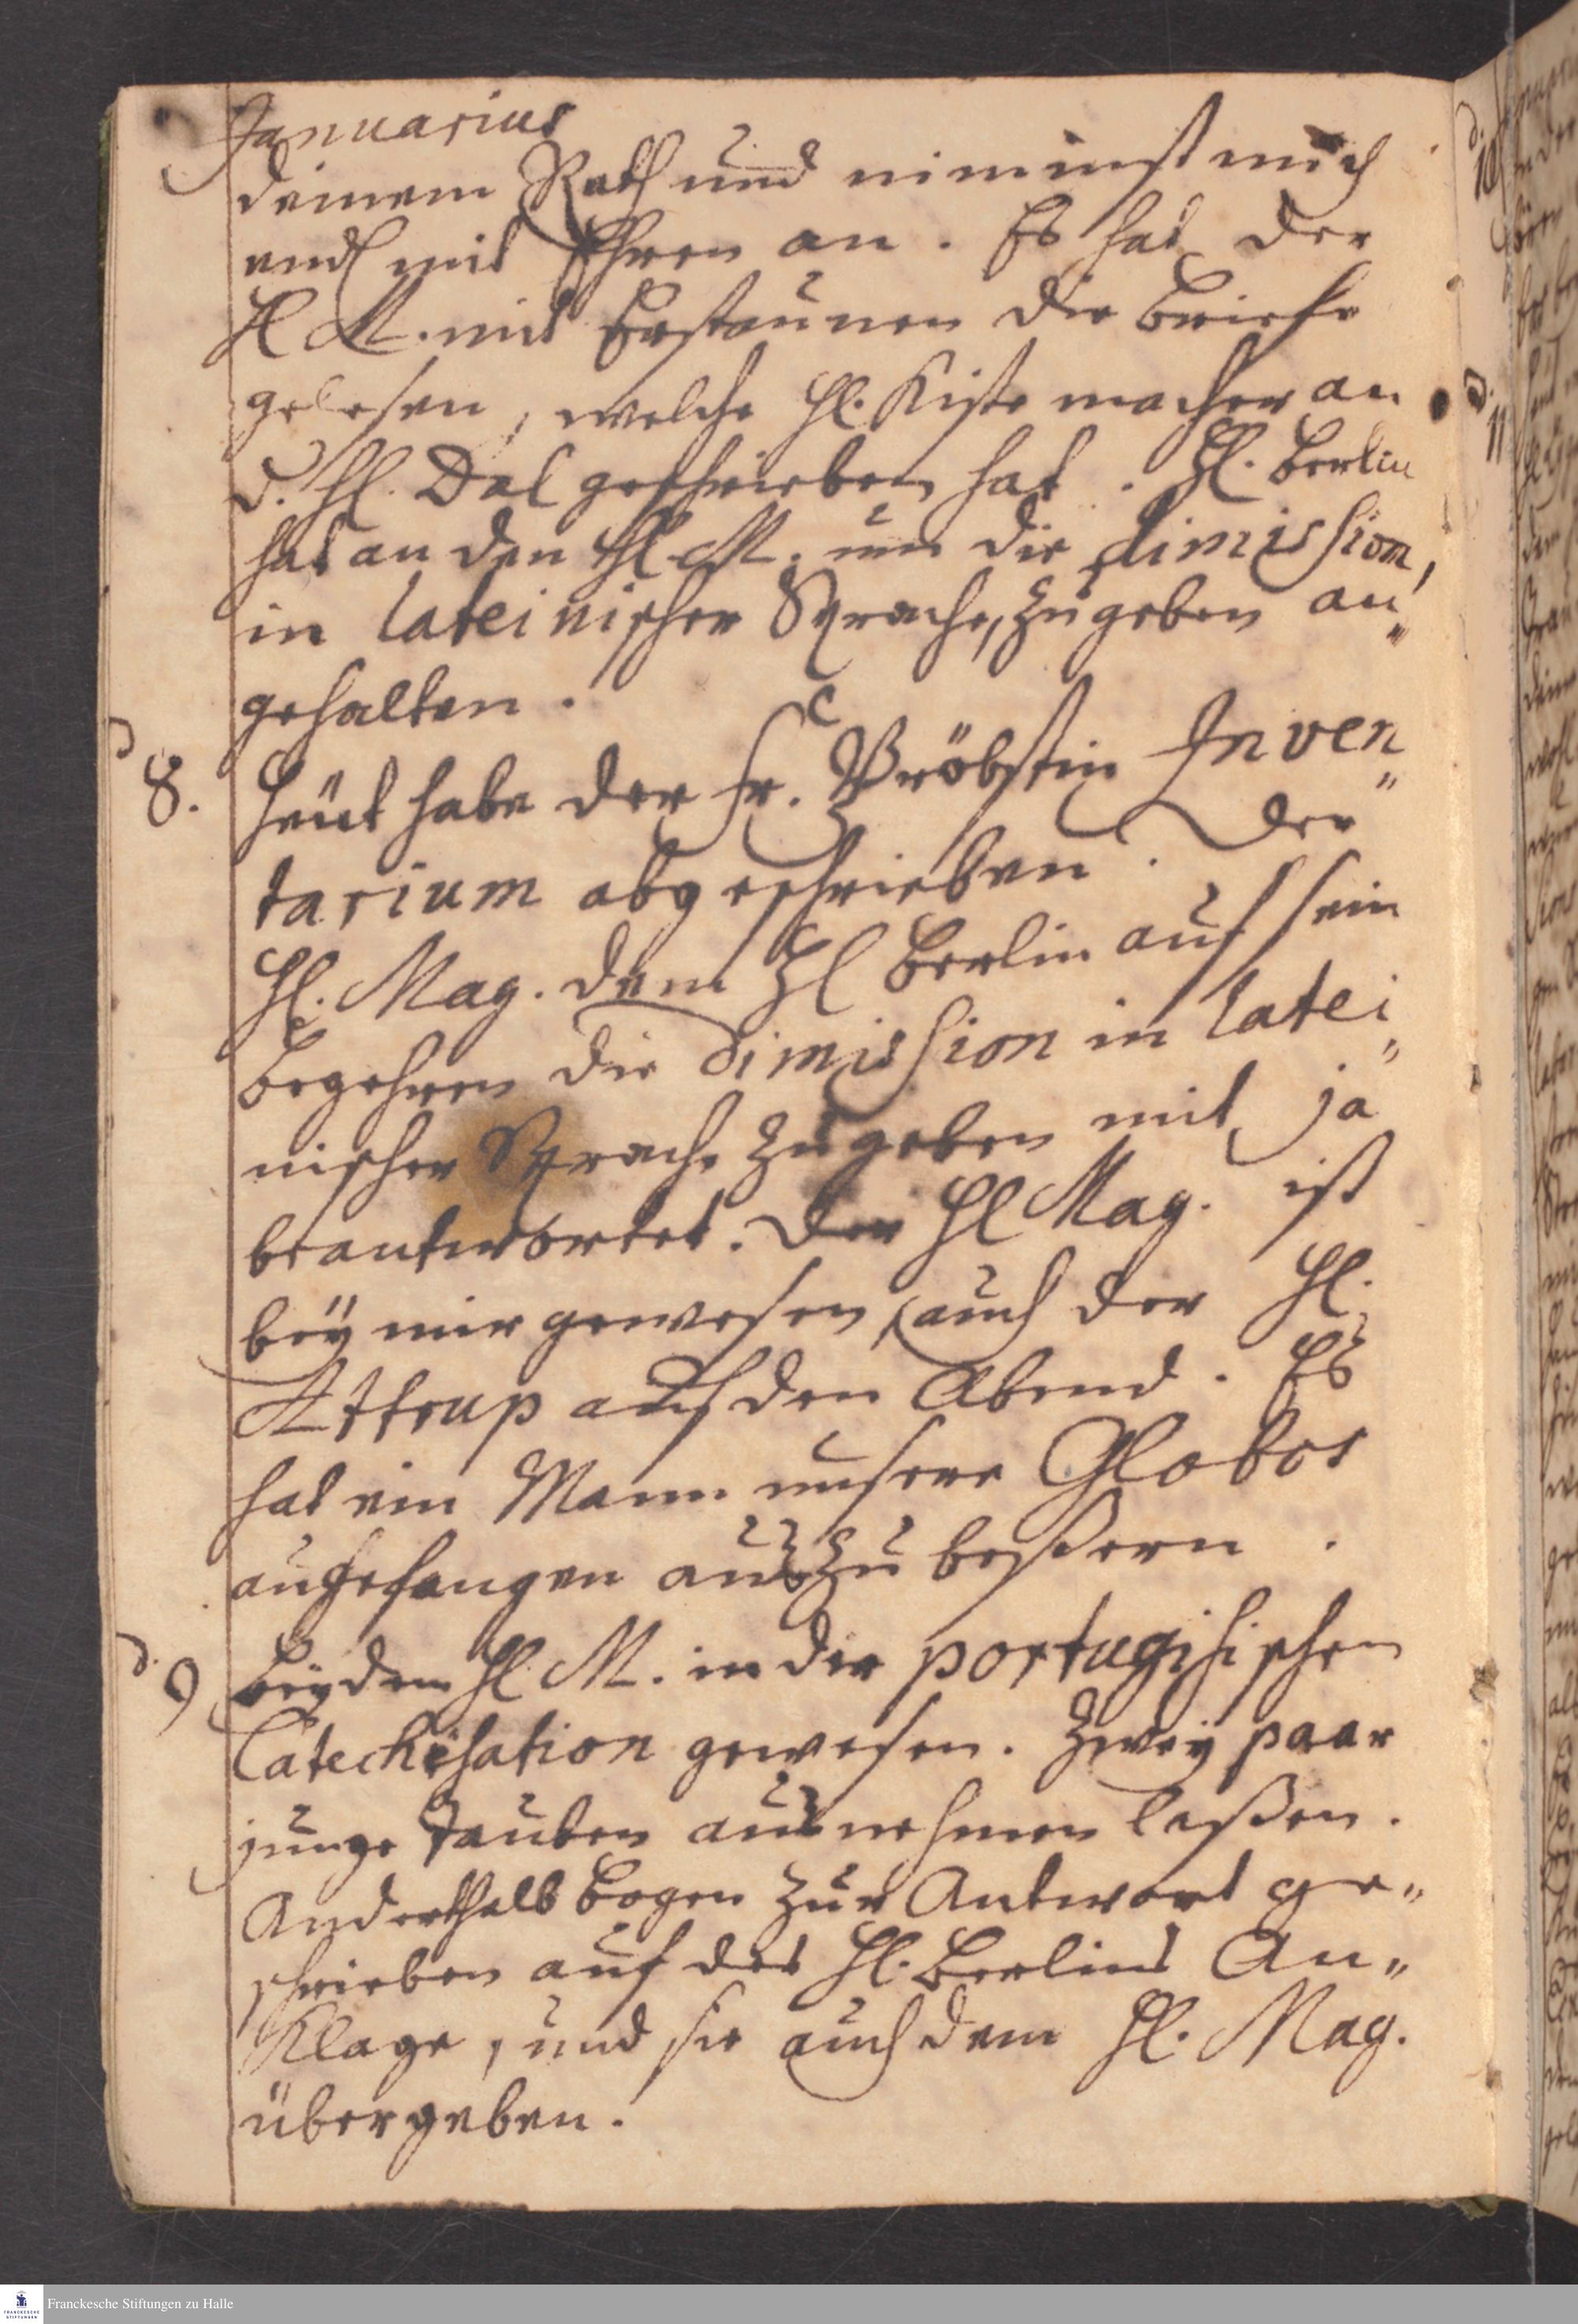 Januarius
deinem Rath und nimmst mich
endl mit Ehren an. Es hat der
H M. mit Erstaunen die Briefe
gelesen, welche Hl. Kistemacher an
d. Hl. Dal geschrieben hat. Hl. Berlin
hat an den Hl M. um die dimission,
in lateinischer Sprache, zu geben an„
gehalten.
d 8. Heüt habe der Fr. Pröbstin Inven„
tarium abgeschrieben. Der
Hl. Mag. dem Hl Berlin auf sein
Begehren die dimission in latei„
nischer Sprache zu geben mit ja
beantwortet. Der Hl Mag. ist
bey mir gewesen, auch der Hl.
Attrup auf den Abend. Es
hat ein Mann unsere Globos
angefangen auszubeßern.
d. 9 Bey dem Hl. M. in der portugisischen
Catechisation gewesen. Zwey paar
junge Tauben ausnehmen laßen.
Anderthalb Bogen zur Antwort ge„
schrieben auf des Hl. Berlins An„
klage, und sie auch dem Hl. Mag.
übergeben.
Franckesche Stiftungen zu Halle